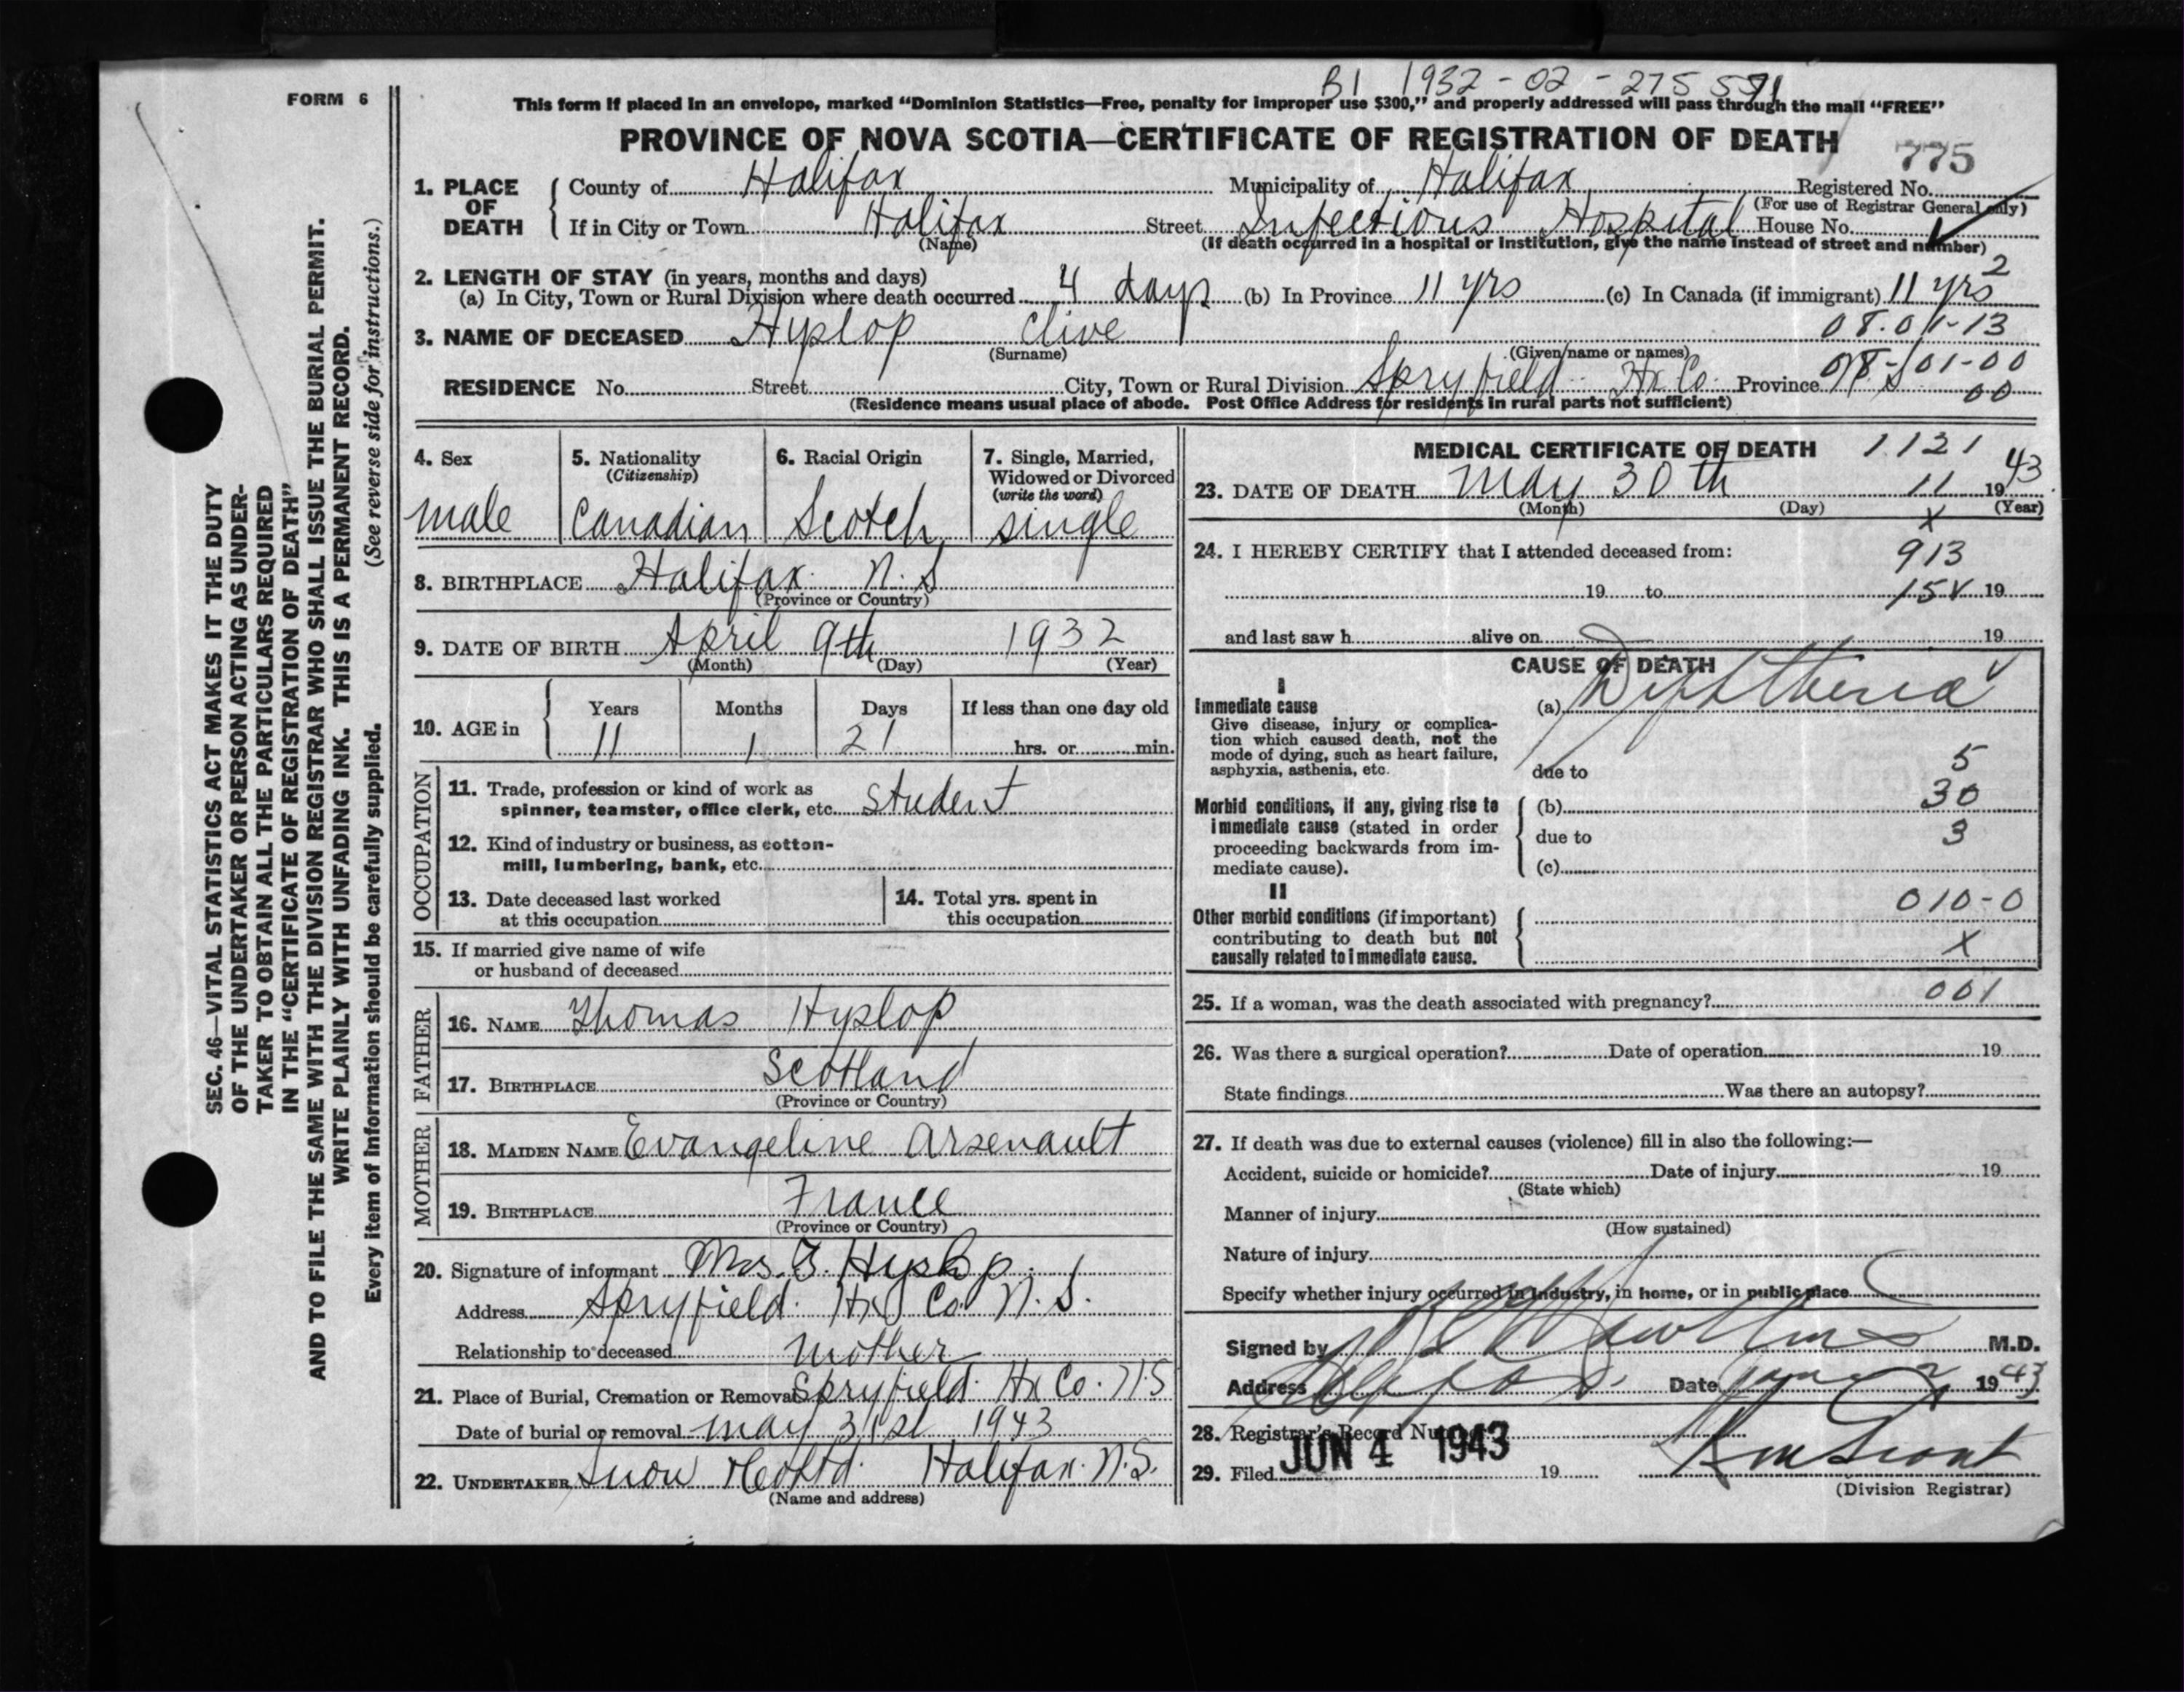 FORM 6
B1 1932-02-275 571
This form if placed in an envelope, marked “Dominion Statistics—Free, penalty for improper use $300,” and properly addressed will pass through the mail “FREE”
PROVINCE OF NOVA SCOTIA—CERTIFICATE OF REGISTRATION OF DEATH
775
1. PLACE OF DEATH County of Halifax Municipality of Halifax Registered No.
(For use of Registrar General only)
If in City or Town Halifax Street Infectious Hospital House No.
(Name) (If death occurred in a hospital or institution, give the name instead of street and number)
2. LENGTH OF STAY (in years, months and days)
2
(a) In City, Town or Rural Division where death occurred 4 days (b) In Province 11 yrs (c) In Canada (if immigrant) 11 yrs
08.01-13
3. NAME OF DECEASED Hyslop Clive
(Surname) (Given name or names)
08-01-00
RESIDENCE No. Street City, Town or Rural Division Spryfield Hx Co. Province N.S
00
(Residence means usual place of abode. Post Office Address for residents in rural parts not sufficient)
4. Sex
male
5. Nationality
(Citizenship)
Canadian
6. Racial Origin
Scotch
7. Single, Married,
Widowed or Divorced
(write the word)
single
8. BIRTHPLACE Halifax N.S
(Province or Country)
9. DATE OF BIRTH April 9th 1932
(Month) (Day) (Year)
10. AGE in Years Months Days If less than one day old
11 1 21 hrs. or min.
OCCUPATION
11. Trade, profession or kind of work as
spinner, teamster, office clerk, etc. student
12. Kind of industry or business, as cotton-
mill, lumbering, bank, etc.
13. Date deceased last worked
at this occupation
14. Total yrs. spent in
this occupation
15. If married give name of wife
or husband of deceased
FATHER
16. NAME Thomas Hyslop
17. BIRTHPLACE Scotland
(Province or Country)
MOTHER
18. MAIDEN NAME Evangeline Arsenault
19. BIRTHPLACE France
(Province or Country)
20. Signature of informant Mrs. T. Hyslop
Address Spryfield Hx Co. N.S.
Relationship to deceased mother
21. Place of Burial, Cremation or Removal Spryfield Hx Co. N.S
Date of burial or removal May 31st 1943
22. UNDERTAKER Snow & Co Ltd. Halifax N.S.
(Name and address)
MEDICAL CERTIFICATE OF DEATH 1121
23. DATE OF DEATH May 30th 11 1943
(Month) (Day) (Year)
x
24. I HEREBY CERTIFY that I attended deceased from: 913
19 to 15V 19
and last saw h alive on 19
CAUSE OF DEATH
I
Immediate cause
Give disease, injury or complica-
tion which caused death, not the
mode of dying, such as heart failure,
asphyxia, asthenia, etc.
(a) Diphtheria
5
due to
Morbid conditions, if any, giving rise to
immediate cause (stated in order
proceeding backwards from im-
mediate cause).
(b) 30
due to 3
(c)
II
Other morbid conditions (if important)
contributing to death but not
causally related to immediate cause.
010-0
X
25. If a woman, was the death associated with pregnancy? 001
26. Was there a surgical operation? Date of operation 19
State findings Was there an autopsy?
27. If death was due to external causes (violence) fill in also the following:—
Accident, suicide or homicide? Date of injury 19
(State which)
Manner of injury
(How sustained)
Nature of injury
Specify whether injury occurred in industry, in home, or in public place
Signed by M.D.
Address Date June 2 1943
28. Registrar's Record Number
29. Filed JUN 4 1943 19
(Division Registrar)
SEC. 46—VITAL STATISTICS ACT MAKES IT THE DUTY
OF THE UNDERTAKER OR PERSON ACTING AS UNDER-
TAKER TO OBTAIN ALL THE PARTICULARS REQUIRED
IN THE “CERTIFICATE OF REGISTRATION OF DEATH”
AND TO FILE THE SAME WITH THE DIVISION REGISTRAR WHO SHALL ISSUE THE BURIAL PERMIT.
WRITE PLAINLY WITH UNFADING INK. THIS IS A PERMANENT RECORD.
Every item of information should be carefully supplied. (See reverse side for instructions.)